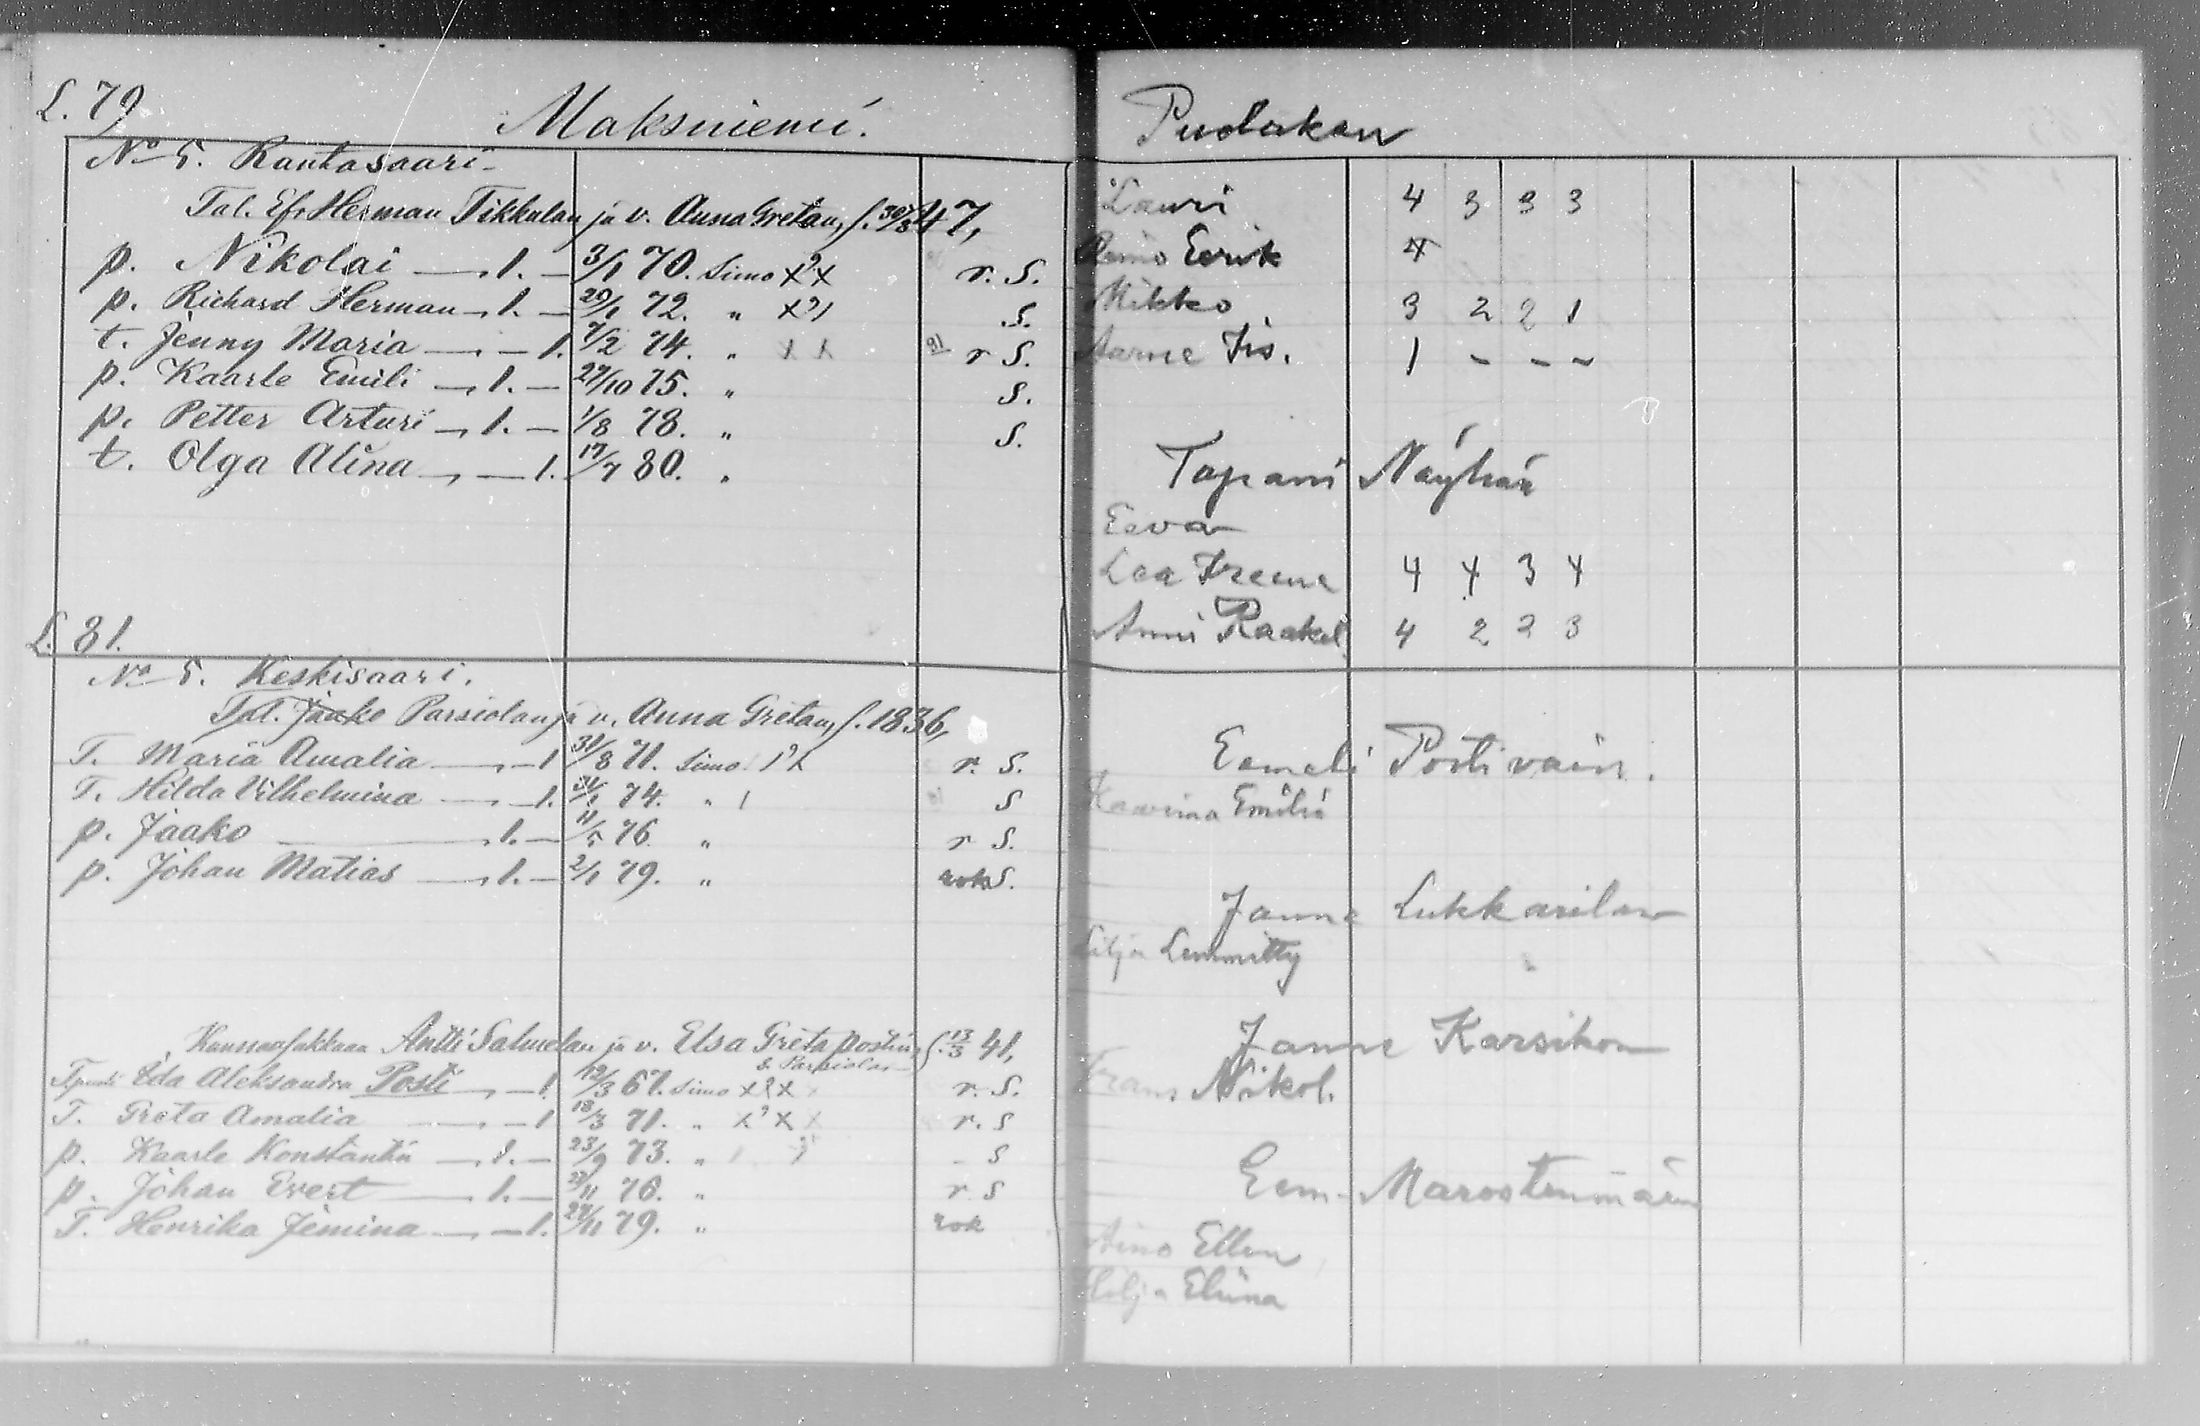 L. 79
Maksniemi.
No 5. Rantasaari
Tal. Ef. Herman Tikkalan ja v. Anna Gretan, f. 30/8 47,
p. Nikolai — 1. — 3/1 70. Simo x?x r. S.
p. Richard Herman — 1. — 29/1 72. " x?1 S.
t. Jenny Maria — 1. 7/2 74. " x x r S.
p. Kaarle Emili — 1. — 27/10 75. " S.
p. Petter Arturi — 1. — 1/8 78. " S.
t. Olga Alina — 1. 17/7 80. "
L. 81.
No 5. Keskisaari.
Tal. Jaako Parsiolan ja v. Anna Gretan, f. 1836,
T. Maria Amalia — 1 31/8 71. Simo r. S.
T. Hilda Vilhelmina — 1. 74. " 1 S
p. Jaako — 1. — 11/5 76. " r S.
p. Johan Matias — 1. — 2/1 79. " rok S.
Antti Salmelan ja v. Elsa Greta Postin, f. 13/3 41,
Parsiolan
Ida Aleksandra Posti — 1. 12/3 67. Simo x?x r. S.
T. Greta Amalia — 1 18/3 71. " x?x x r. S
p. Kaarle Konstantin — 1. — 23/9 73. " S
p. Johan Evert — 1. — 76. " r S
T. Henrika Jemina — 1. 79. " rok
Puolakan
Lauri 4 3 3 3
Reino Eerik 4
Mikko 3 2 2 1
Aarne Iis. 1 - - -
Tapani Näyhän
Eeva
Lea Ireene 4 4 3 4
Anni Raakel 4 2 2 3
Eemeli Posti vain.
Emilia
Janne Lukkarilan
Lilja Lemmitty
Janne Karsikon
Frans Nikol.
Eem.
Aino Ellen
Hilja Eliina